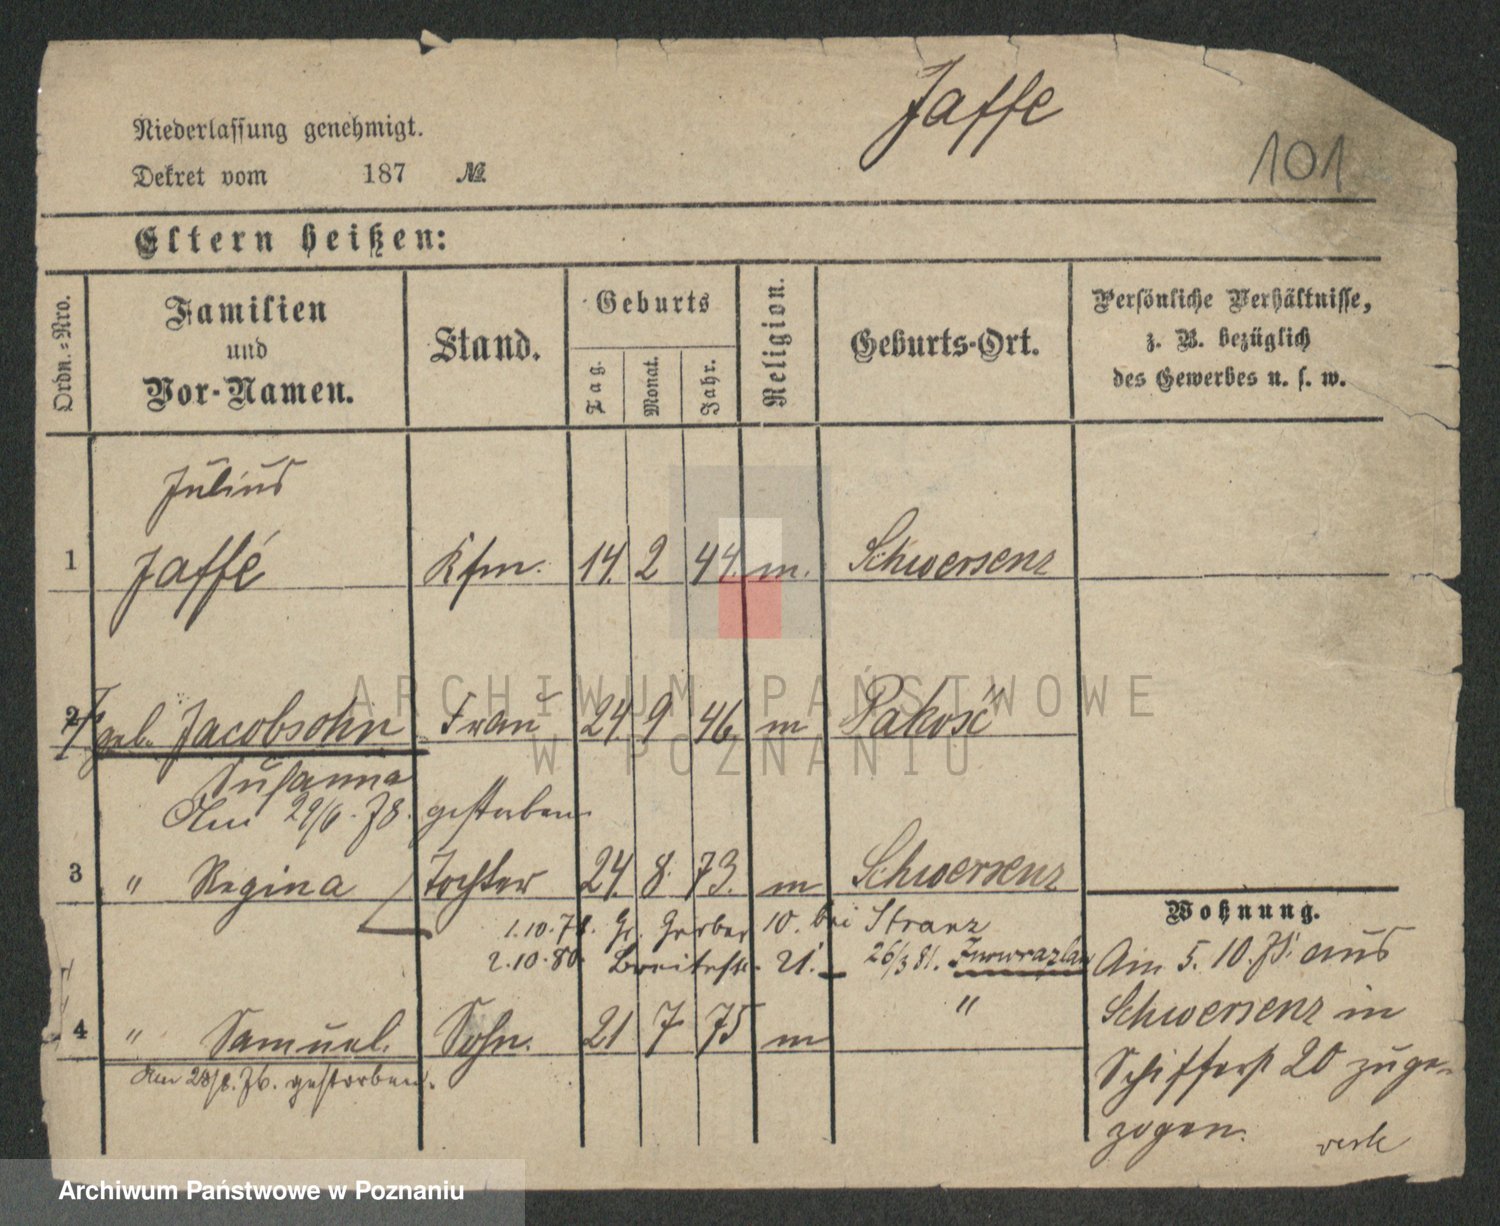 Jaffe
101
Niederlassung genehmigt.
Dekret vom 187 №
Eltern heißen:
Ordn.-Nro.
Familien
und
Vor-Namen.
Stand.
Geburts
Tag.
Monat.
Jahr.
Religion.
Geburts-Ort.
Persönliche Verhältnisse,
z. B. bezüglich
des Gewerbes u. s. w.
Julius
1 Jaffé Kfm. 14. 2 44. m. Schwersenz
2 geb. Jacobsohn Frau 24. 9 46 m Pakość
Susanna
Am 29/6. 78. gestorben
3 " Regina Tochter 24. 8. 73. m Schwersenz
1.10.78. Gr. Gerber 10. bei Stranz
2.10.80 Breitestr. 21. 26/3 81. Inowrazlaw
4 " Samuel Sohn. 21 7 75 m "
Am 28/8. 76. gestorben.
Wohnung.
Am 5. 10. 75. aus
Schwersenz in
Schifferst 20 zuge-
zogen.
ARCHIWUM PAŃSTWOWE
W POZNANIU
Archiwum Państwowe w Poznaniu